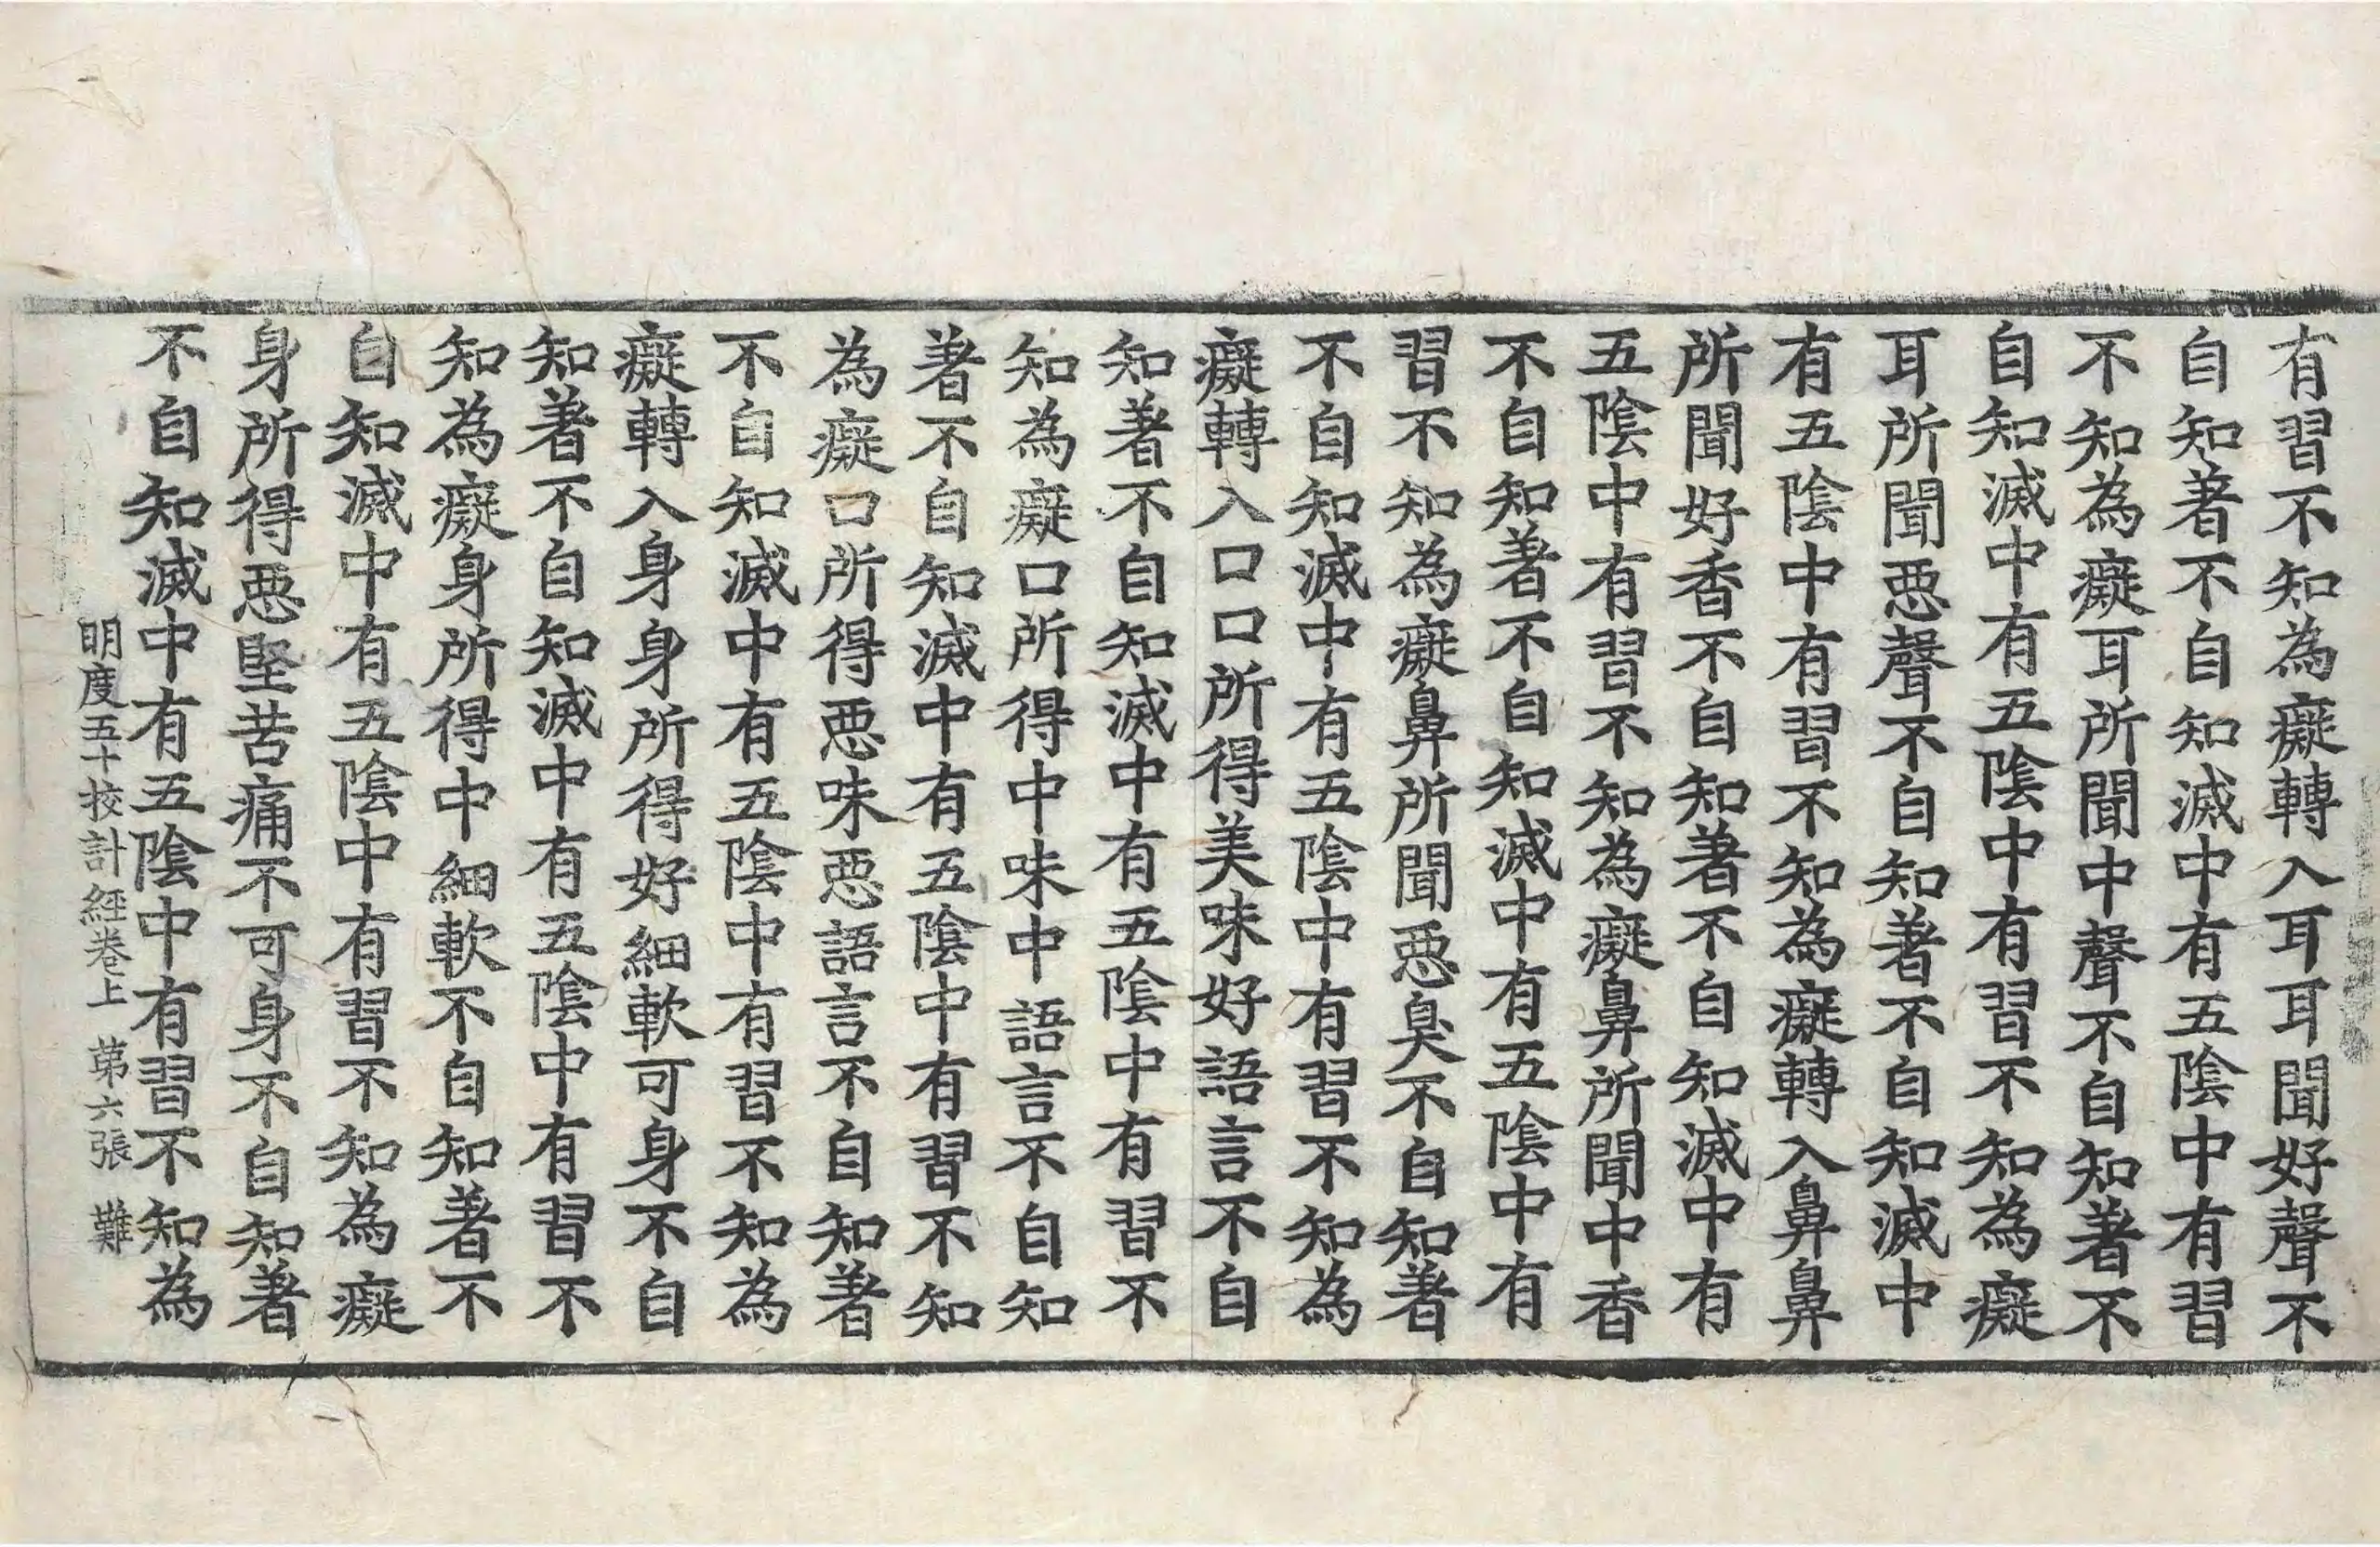 有習不知為癡轉入耳耳聞好聲不
自知著不自知滅中有五陰中有習
不知為癡耳所聞中聲不自知著不
自知滅中有五陰中有習不知為癡
耳所聞惡聲不自知著不自知滅中
有五陰中有習不知為癡轉入鼻鼻
所聞好香不自知著不自知滅中有
五陰中有習不知為癡鼻所聞中香
不自知著不自知滅中有五陰中有
習不知為癡鼻所聞惡臭不自知著
不自知滅中有五陰中有習不知為
癡轉入口口所得美味好語言不自
知著不自知滅中有五陰中有習不
知為癡口所得中味中語言不自知
著不自知滅中有五陰中有習不知
為癡口所得惡味惡語言不自知著
不自知滅中有五陰中有習不知為
癡轉入身身所得好細軟可身不自
知著不自知滅中有五陰中有習不
知為癡身所得中細軟不自知著不
自知滅中有五陰中有習不知為癡
身所得惡堅苦痛不可身不自知著
不自知滅中有五陰中有習不知為
明度五十挍計經卷上 第六張 難